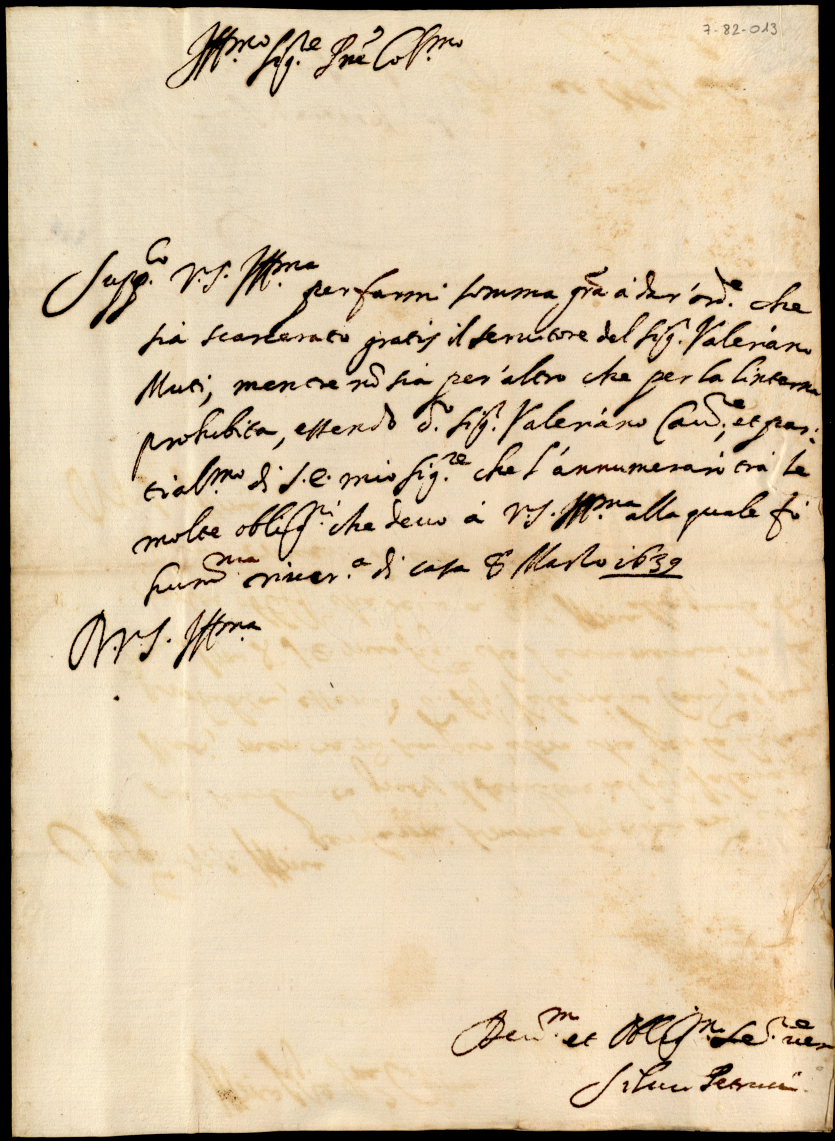 7-82-013
Ill.mo Sig.re P.ne Col.mo
Supp.co V.S. Ill.ma per farmi somma gra à dar' ord.e che
sia scarcerato gratis il seruitore del Sig.r Valeriano
Muti, mentre nō sia per altro che per la linterna
prohibita, essendo d.o Sig.r Valeriano et par:
tial.mo di S.E. mio Sig.re che l'annumerarò trà le
molte oblig.ni che deuo à V.S. Ill.ma alla quale fò
hum.ma riuer.a di casa 8 Marzo 1639
D V.S. Ill.ma
Deu.m et Oblig.m Se.re
Siluio Petrucci